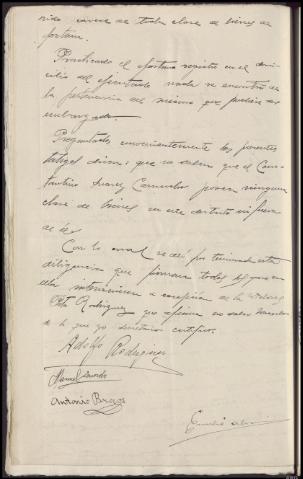 rido carece de toda clase de bienes de
fortuna.
Practicado el oportuno registro en el domi-
cilio del ejecutado nada se encontro de
la pertenencia del mismo que pudiera ser
embargado.
Preguntados convenientemente los parientes
dicen: que no saben que el Cons-
tantino Suarez posea ninguna
clase de bienes en este distrito ni fuera
de él.
Con lo cual se dió por terminada esta
diligencia que firman todos los que en
ella intervinieron a excepción de la
Rodriguez que afirma no saber hacerlo
de lo que yo secretario certifico.
Adolfo Rodriguez
Manuel
Antonio Bragos
Emilio